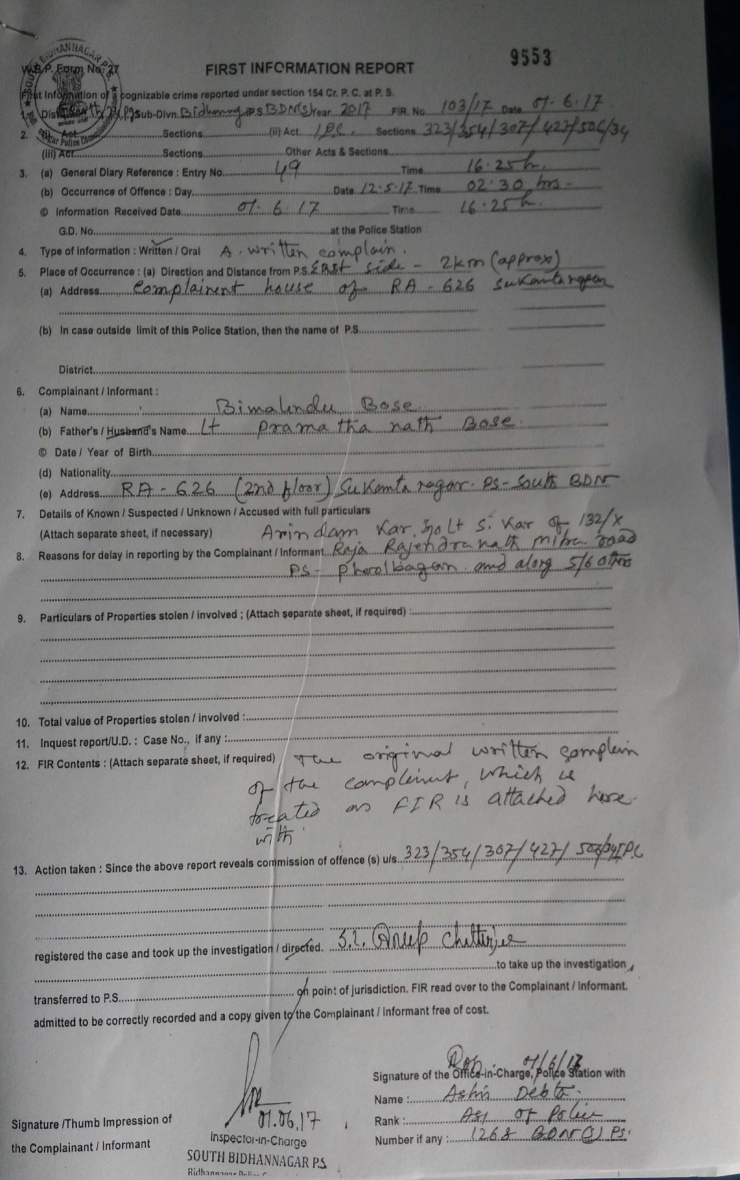 9553
W.B.P. Form No. 27
FIRST INFORMATION REPORT
First Information of a cognizable crime reported under section 154 Cr. P. C. at P. S.
Sub-Divn. P.S. BDN(S) Year 2017 FIR. No. 103/17 Date 01.6.17
2. Act Sections (ii) Act IPC. Sections 323/354/307/427/506/34
(iii) Act Sections Other Acts & Sections
3. (a) General Diary Reference : Entry No. 49 Time 16.25 h
(b) Occurrence of Offence : Day Date 12.5.17 Time 02.30 hrs.
© Information Received Date 01.6.17 Time 16.25 h.
G.D. No. at the Police Station
4. Type of information : Written / Oral A written complain.
5. Place of Occurrence : (a) Direction and Distance from P.S. East side - 2km (approx)
(a) Address complainent house of RA - 626 Sukantanagar
(b) In case outside limit of this Police Station, then the name of P.S.
District
6. Complainant / Informant :
(a) Name Bimalendu Bose
(b) Father's / Husband's Name Lt Pramatha nath Bose.
© Date / Year of Birth
(d) Nationality
(e) Address RA - 626 (2nd floor) Sukanta nagar - PS - South BDN
7. Details of Known / Suspected / Unknown / Accused with full particulars
(Attach separate sheet, if necessary) Arindam Kar. S/o Lt S. Kar of 132/X
8. Reasons for delay in reporting by the Complainant / Informant Raja Rajendra nath mitra road
PS - Phoolbagan and along 5/6 others
9. Particulars of Properties stolen / involved ; (Attach separate sheet, if required) :
10. Total value of Properties stolen / involved :
11. Inquest report/U.D. : Case No., if any :
12. FIR Contents : (Attach separate sheet, if required) The original written complain
of the complainent, which is
treated as FIR is attached here
with
13. Action taken : Since the above report reveals commission of offence (s) u/s. 323/354/307/427/506/34 IPC
registered the case and took up the investigation / directed. S.I. Anup Chatterjee
to take up the investigation
transferred to P.S. on point of jurisdiction. FIR read over to the Complainant / Informant.
admitted to be correctly recorded and a copy given to the Complainant / Informant free of cost.
01/6/17
Signature of the Office-in-Charge, Police Station with
Name : Ashis Debta
01.06.17
Rank : ASI of Police
Signature /Thumb Impression of
the Complainant / Informant
Inspector-in-Charge
Number if any : 1268 BDN(S) PS.
SOUTH BIDHANNAGAR P.S